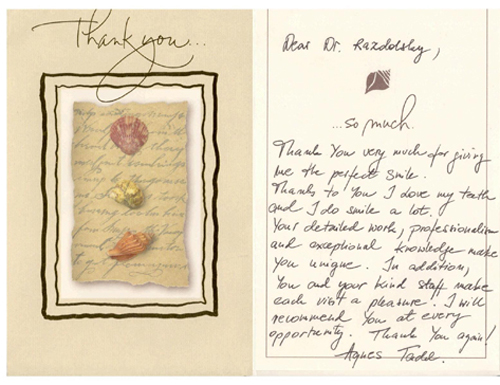 Thank you...
Dear Dr. Razdolsky,
...so much.
Thank You very much for giving
me the perfect smile.
Thanks to You I love my teeth
and I do smile a lot.
Your detailed work, professionalism
and exceptional knowledge make
You unique. In addition,
You and your kind staff make
each visit a pleasure. I will
recommend You at every
opportunity. Thank You again!
Agnes